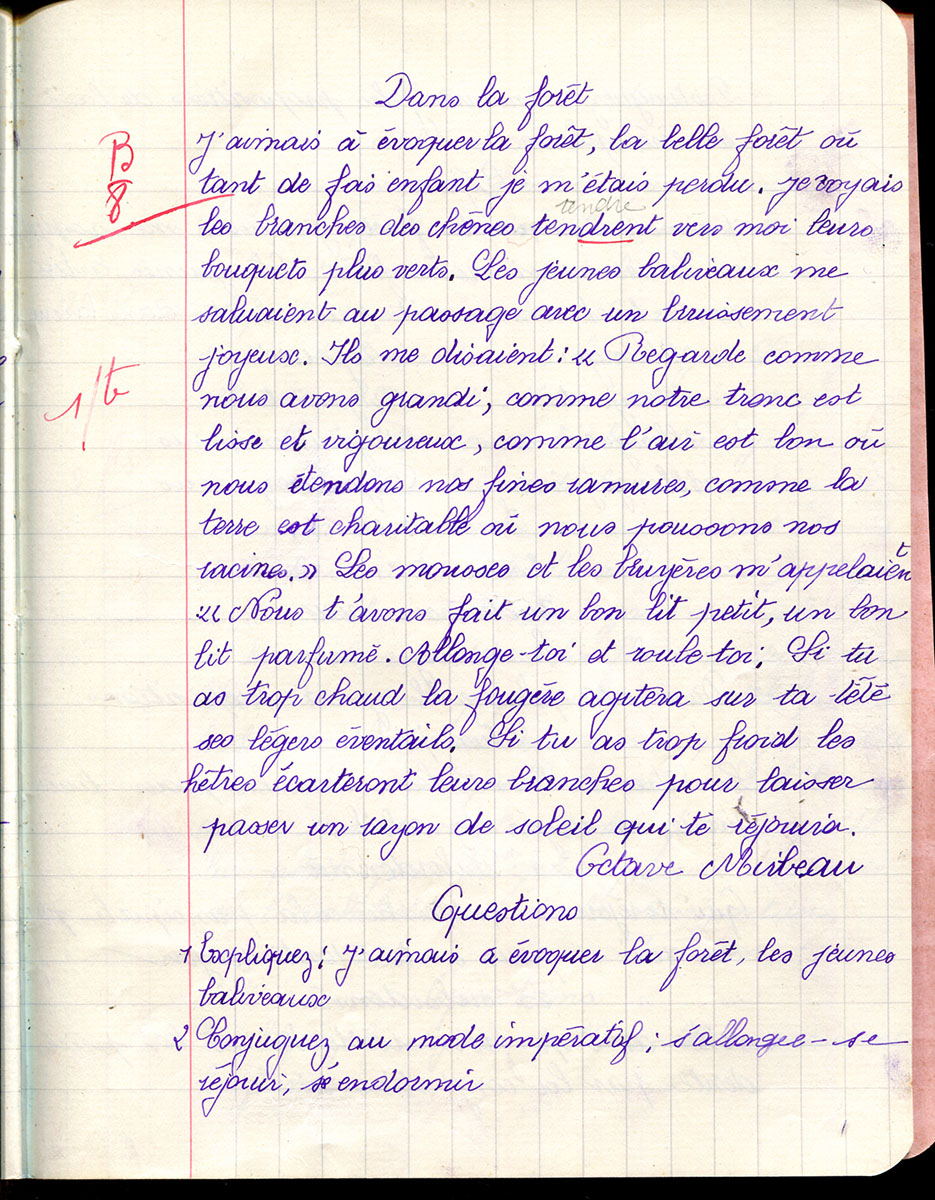 Dans la forêt
B
8
J'aimais à évoquer la forêt, la belle forêt où
tant de fois enfant je m'étais perdu. Je voyais
tendre
les branches des chênes tendrent vers moi leurs
bouquets plus verts. Les jeunes baliveaux me
saluaient au passage avec un bruissement
joyeux. Ils me disaient : « Regarde comme
nous avons grandi, comme notre tronc est
lisse et vigoureux, comme l'air est bon où
nous étendons nos fines ramures, comme la
terre est charitable où nous poussons nos
racines. » Les mousses et les bruyères m'appelaient
« Nous t'avons fait un bon lit petit, un bon
lit parfumé. Allonge-toi et roule toi. Si tu
as trop chaud la fougère agitera sur ta tête
ses légers éventails. Si tu as trop froid les
hêtres écarteront leurs branches pour laisser
passer un rayon de soleil qui te réjouira.
Octave Mirbeau
Questions
1 Expliquez : J'aimais à évoquer la forêt, les jeunes
baliveaux
2 Conjuguez au mode impératif ; s'allonger - se
réjouir, s'endormir